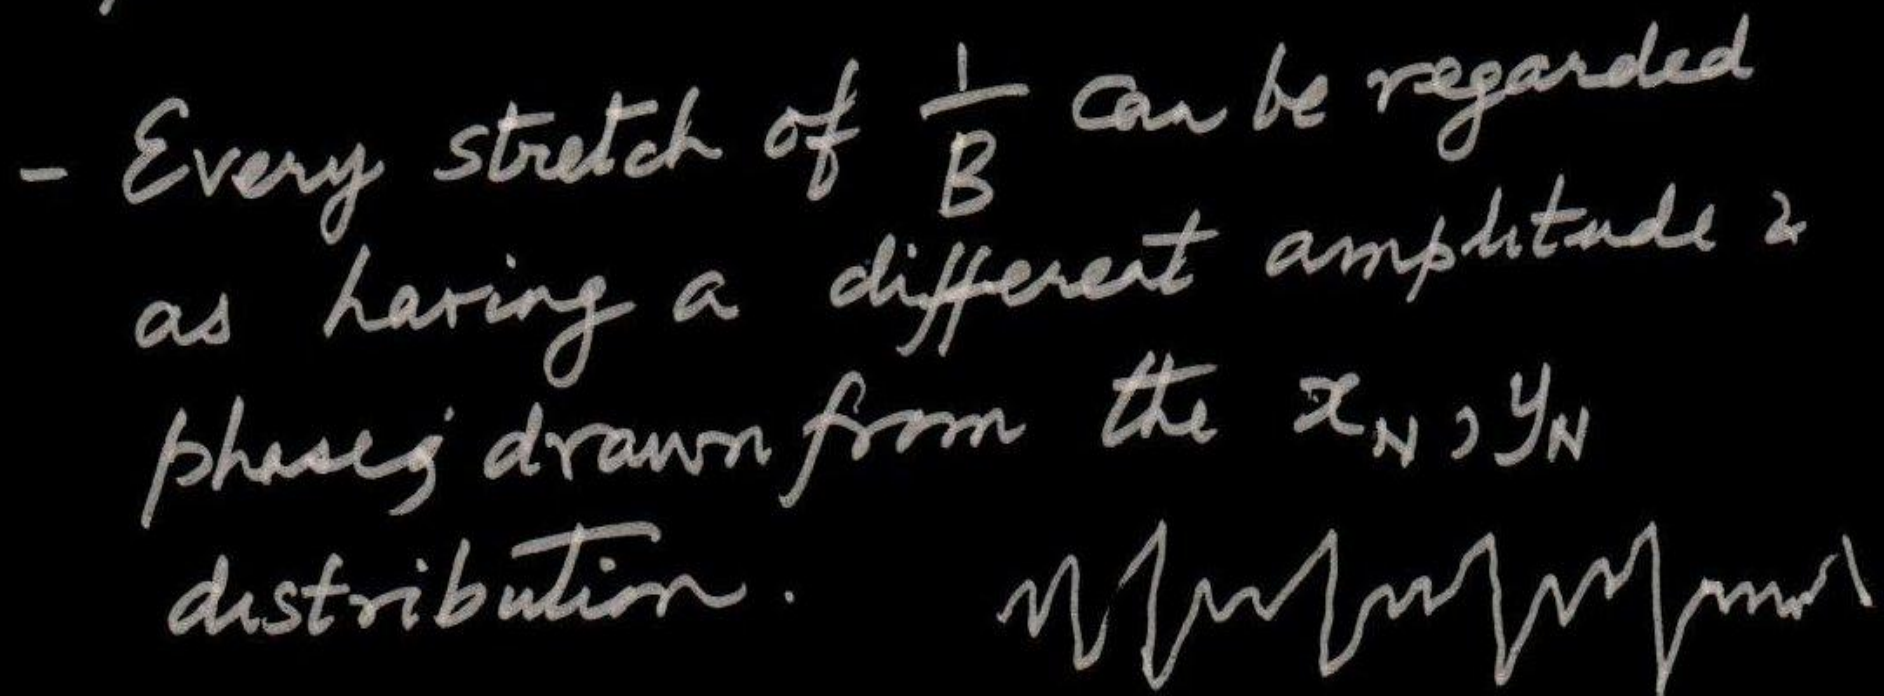 - Every stretch of 1/B can be regarded
as having a different amplitude &
phases drawn from the x_N, y_N
distribution.